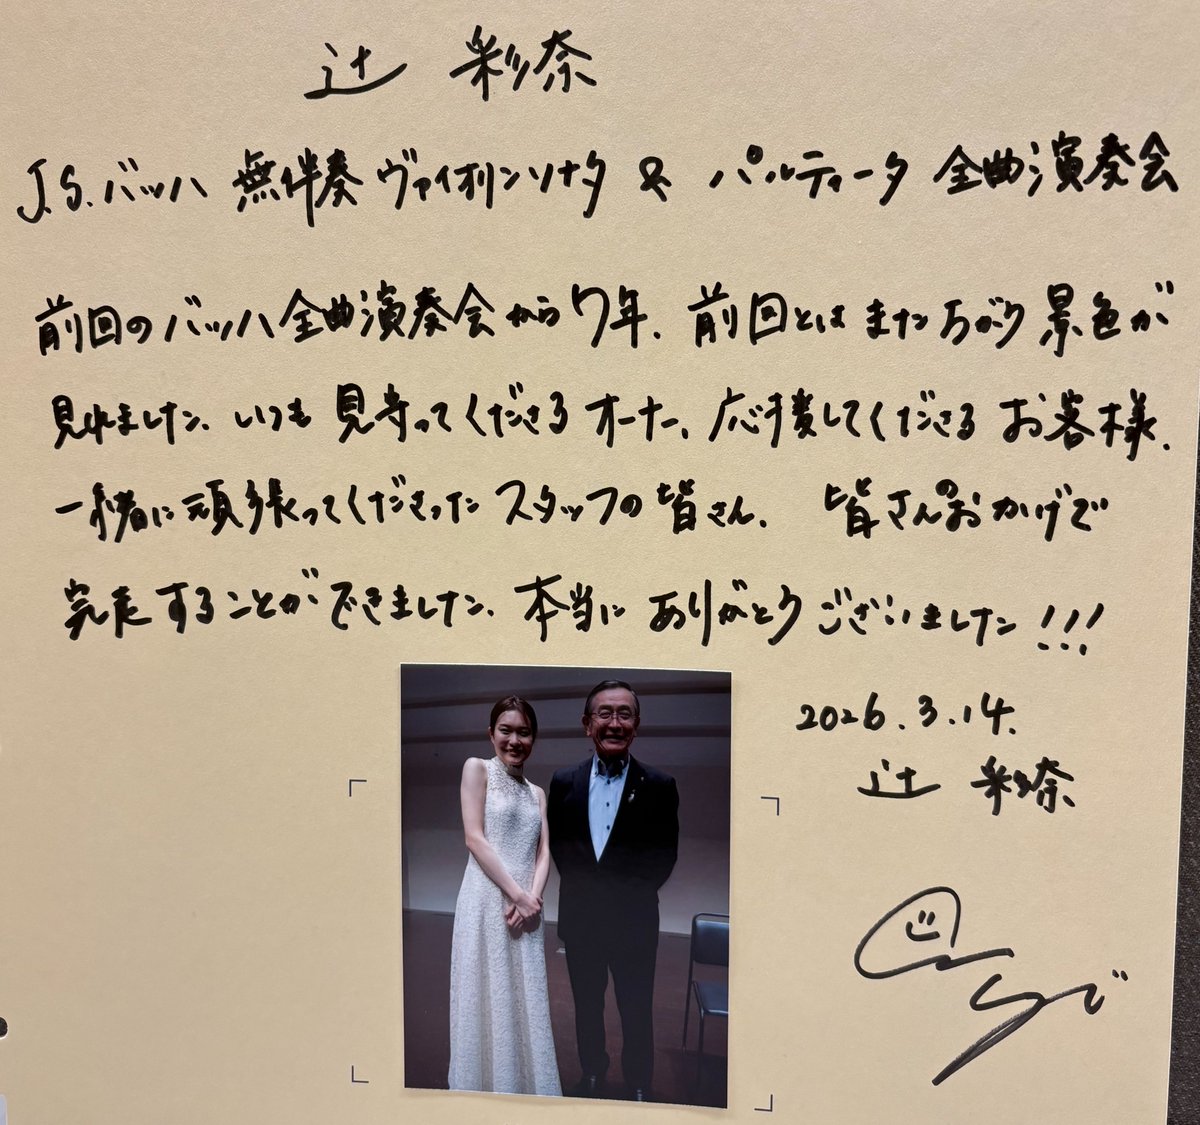 辻 彩奈
J.S.バッハ 無伴奏 ヴァイオリンソナタ & パルティータ 全曲演奏会
前回のバッハ全曲演奏会から7年、前回とはまたちがう景色が
見れました。いつも見守ってくださるオーナー、応援してくださるお客様、
一緒に頑張ってくださったスタッフの皆さん、皆さんのおかげで
完走することができました。本当にありがとうございました!!!
2026.3.14.
辻 彩奈